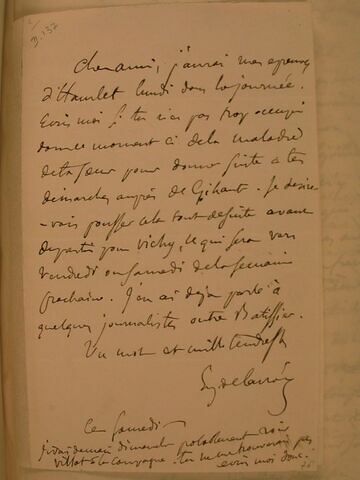 D. 137
Cher ami, j'aurai mes épreuves
d'Hamlet lundi dans la journée.
Ecris moi si tu n'es pas trop occupé
dans ce moment ci de la maladie
de ta soeur pour donner suite à tes
démarches auprès de Gihaut. Je désire-
-rais pousser cela tout de suite avant
de partir pour Vichy, ce qui sera vers
Vendredi ou Samedi de la semaine
prochaine. J'en ai déjà parlé à
quelques journalistes outre Batissier.
Un mot et mille tendresses
Eug. delacroix
Ce Samedi
Je vais demain dimanche probablement voir
Villot à la campagne. tu ne me trouverais pas
écris moi donc.